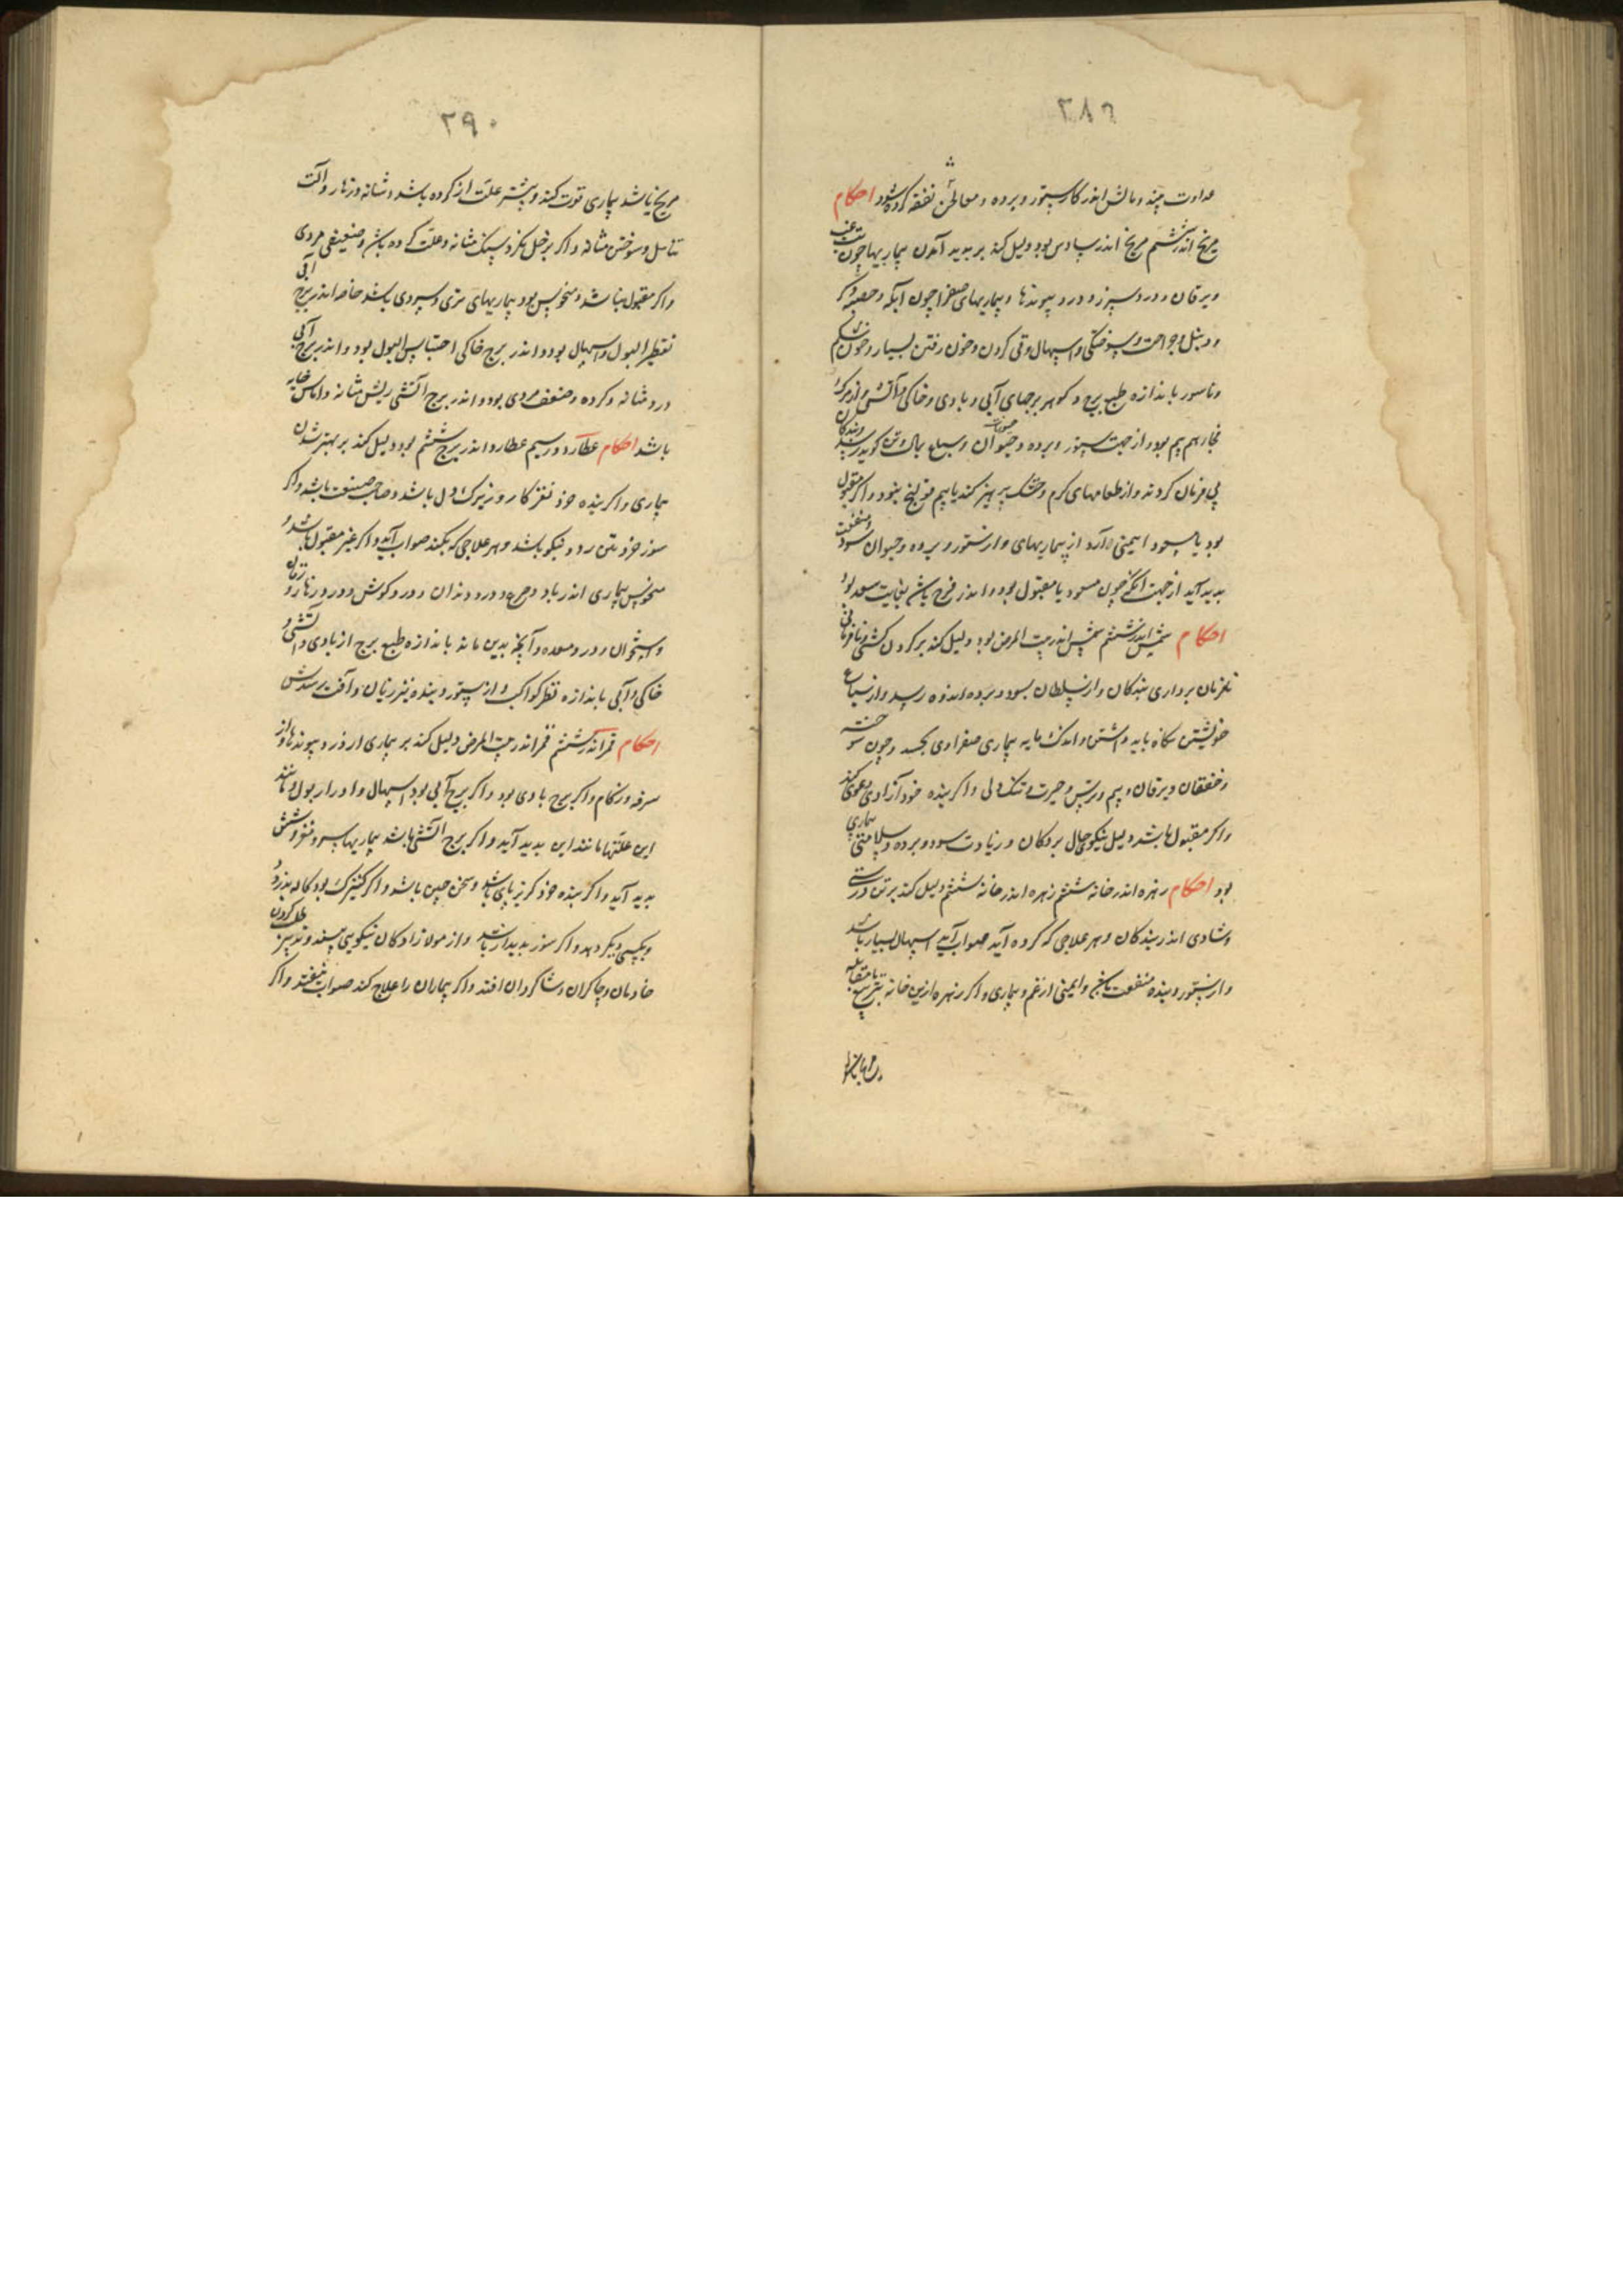 ۲۸۹
عداوت چند و مالش اندر کار ستور و برده و معالجش نفقه کرده شود احکام
مریخ اندر ششم مریخ اندر سادس بود دلیل کند بر بدید آمدن بیماریها چون تب غب
و یرقان و درد سپرز و درد پیوندها و بیماریهای صفرا چون آبله و حصبه و کر
و دنبل و جراحت و سوختگی و اسهال و قی کردن و خون رفتن بسیار و خون شکم
و ناسور باندازه طبع برج و کوهر برجهای آبی و بادی و خاکی و آتشی و از مرک
بیم بود و از جهت ستور و برده و حیوان و سباع
بی فرمان کردند و از طعامهای کرم و خشک پرهیز کند یا بیم قولنج بود و اکر مقبول
بود یا مسعود ایمنی دارد از بیماریهای و از ستور و برده و حیوان سود و منفعت
بدید آید از جهت آنکه چون مسعود یا مقبول بود و اندر فرح باشد بغایت سعد بود
احکام شمس اندر ششم شمس اندر بیت المرض بود دلیل کند بر کردن کشی و نافرمانی
بندکان و از سلطان بسود و برده اندوه رسد و از سباع
خویشتن نکاه باید داشتن و اندک مایه بیماری صفراوی بجسد و چون سوخته
و خفقان و یرقان و بیم و ترس و حیرت و تنک دلی و اکر بنده خود آزادی دعوی کند
و اکر مقبول باشد دلیل نیکویی حال بردکان و زیادت سود و برده و سلامتی بیماری
بود احکام زهره اندر خانه ششم زهره اندر خانه ششم دلیل کند بر تن درستی
و شادی اندر بندکان و هر علاجی که کرده آید صواب آید اسهال بسیار باشد
و از ستور و بنده منفعت و ایمنی از غم و بیماری و اکر زهره ازین خانه بتربیع یا مقابله
۲۹۰
مریخ باشد بیماری قوت کند و بیشتر علت از کرده باشد و مثانه و زهار و آلت
تناسل و سوختن مثانه و اکر بزحل نکرد سنک مثانه و علت کرده باشد و ضعیفی مردی
و اکر مقبول نباشد و منحوس بود بیماریهای تری و سردی باشد خاصه اندر برج آبی
تقطیر البول و اسهال بود و اندر برج خاکی احتباس البول بود و اندر برج آبی
درد مثانه و کرده و ضعف مردی بود و اندر برج آتشی ریش مثانه و اماس خایه
باشد احکام عطارد در سیم عطارد اندر برج ششم بود دلیل کند بر بهتر شدن
بیماری و اکر بنده خرد نغز کار و زیرک دل باشد و صاحب صنعت باشد و اکر
بتن رود نیکو باشد و هر علاجی که بکنند صواب آید و اکر غیر مقبول باشد و
منحوس بیماری اندر باد و درد دندان و درد کوش و درد زهار و
و استخوان و درد معده و آنچه بدین ماند باندازه طبع برج از بادی و آتشی و
خاکی و آبی باندازه نظر کواکب و از ستور و بنده نیز زیان و آفت رسدش
احکام قمر اندر ششم قمر اندر بیت المرض دلیل کند بر بیماری از درد پیوندها و از
سرفه و زکام و اکر برج بادی بود و اکر برج آبی بود اسهال و ادرار بول و مانند
این علتها مانند این بدید آید و اکر برج آتشی باشد بیماریها سر و مغز و شش
بدید آید و اکر بنده خرد کریزپای باشد و سخن چین باشد و اکر کنیزک بود کاله بدزدد
و بکسی دیکر دهد و اکر بدیدار باشد و از مولازادکان نیکویی بیند و تدبیر طلب کردن
خادمان و چاکران و شاکردان افتد و اکر بیماران را علاج کند صواب نیفتد و اکر